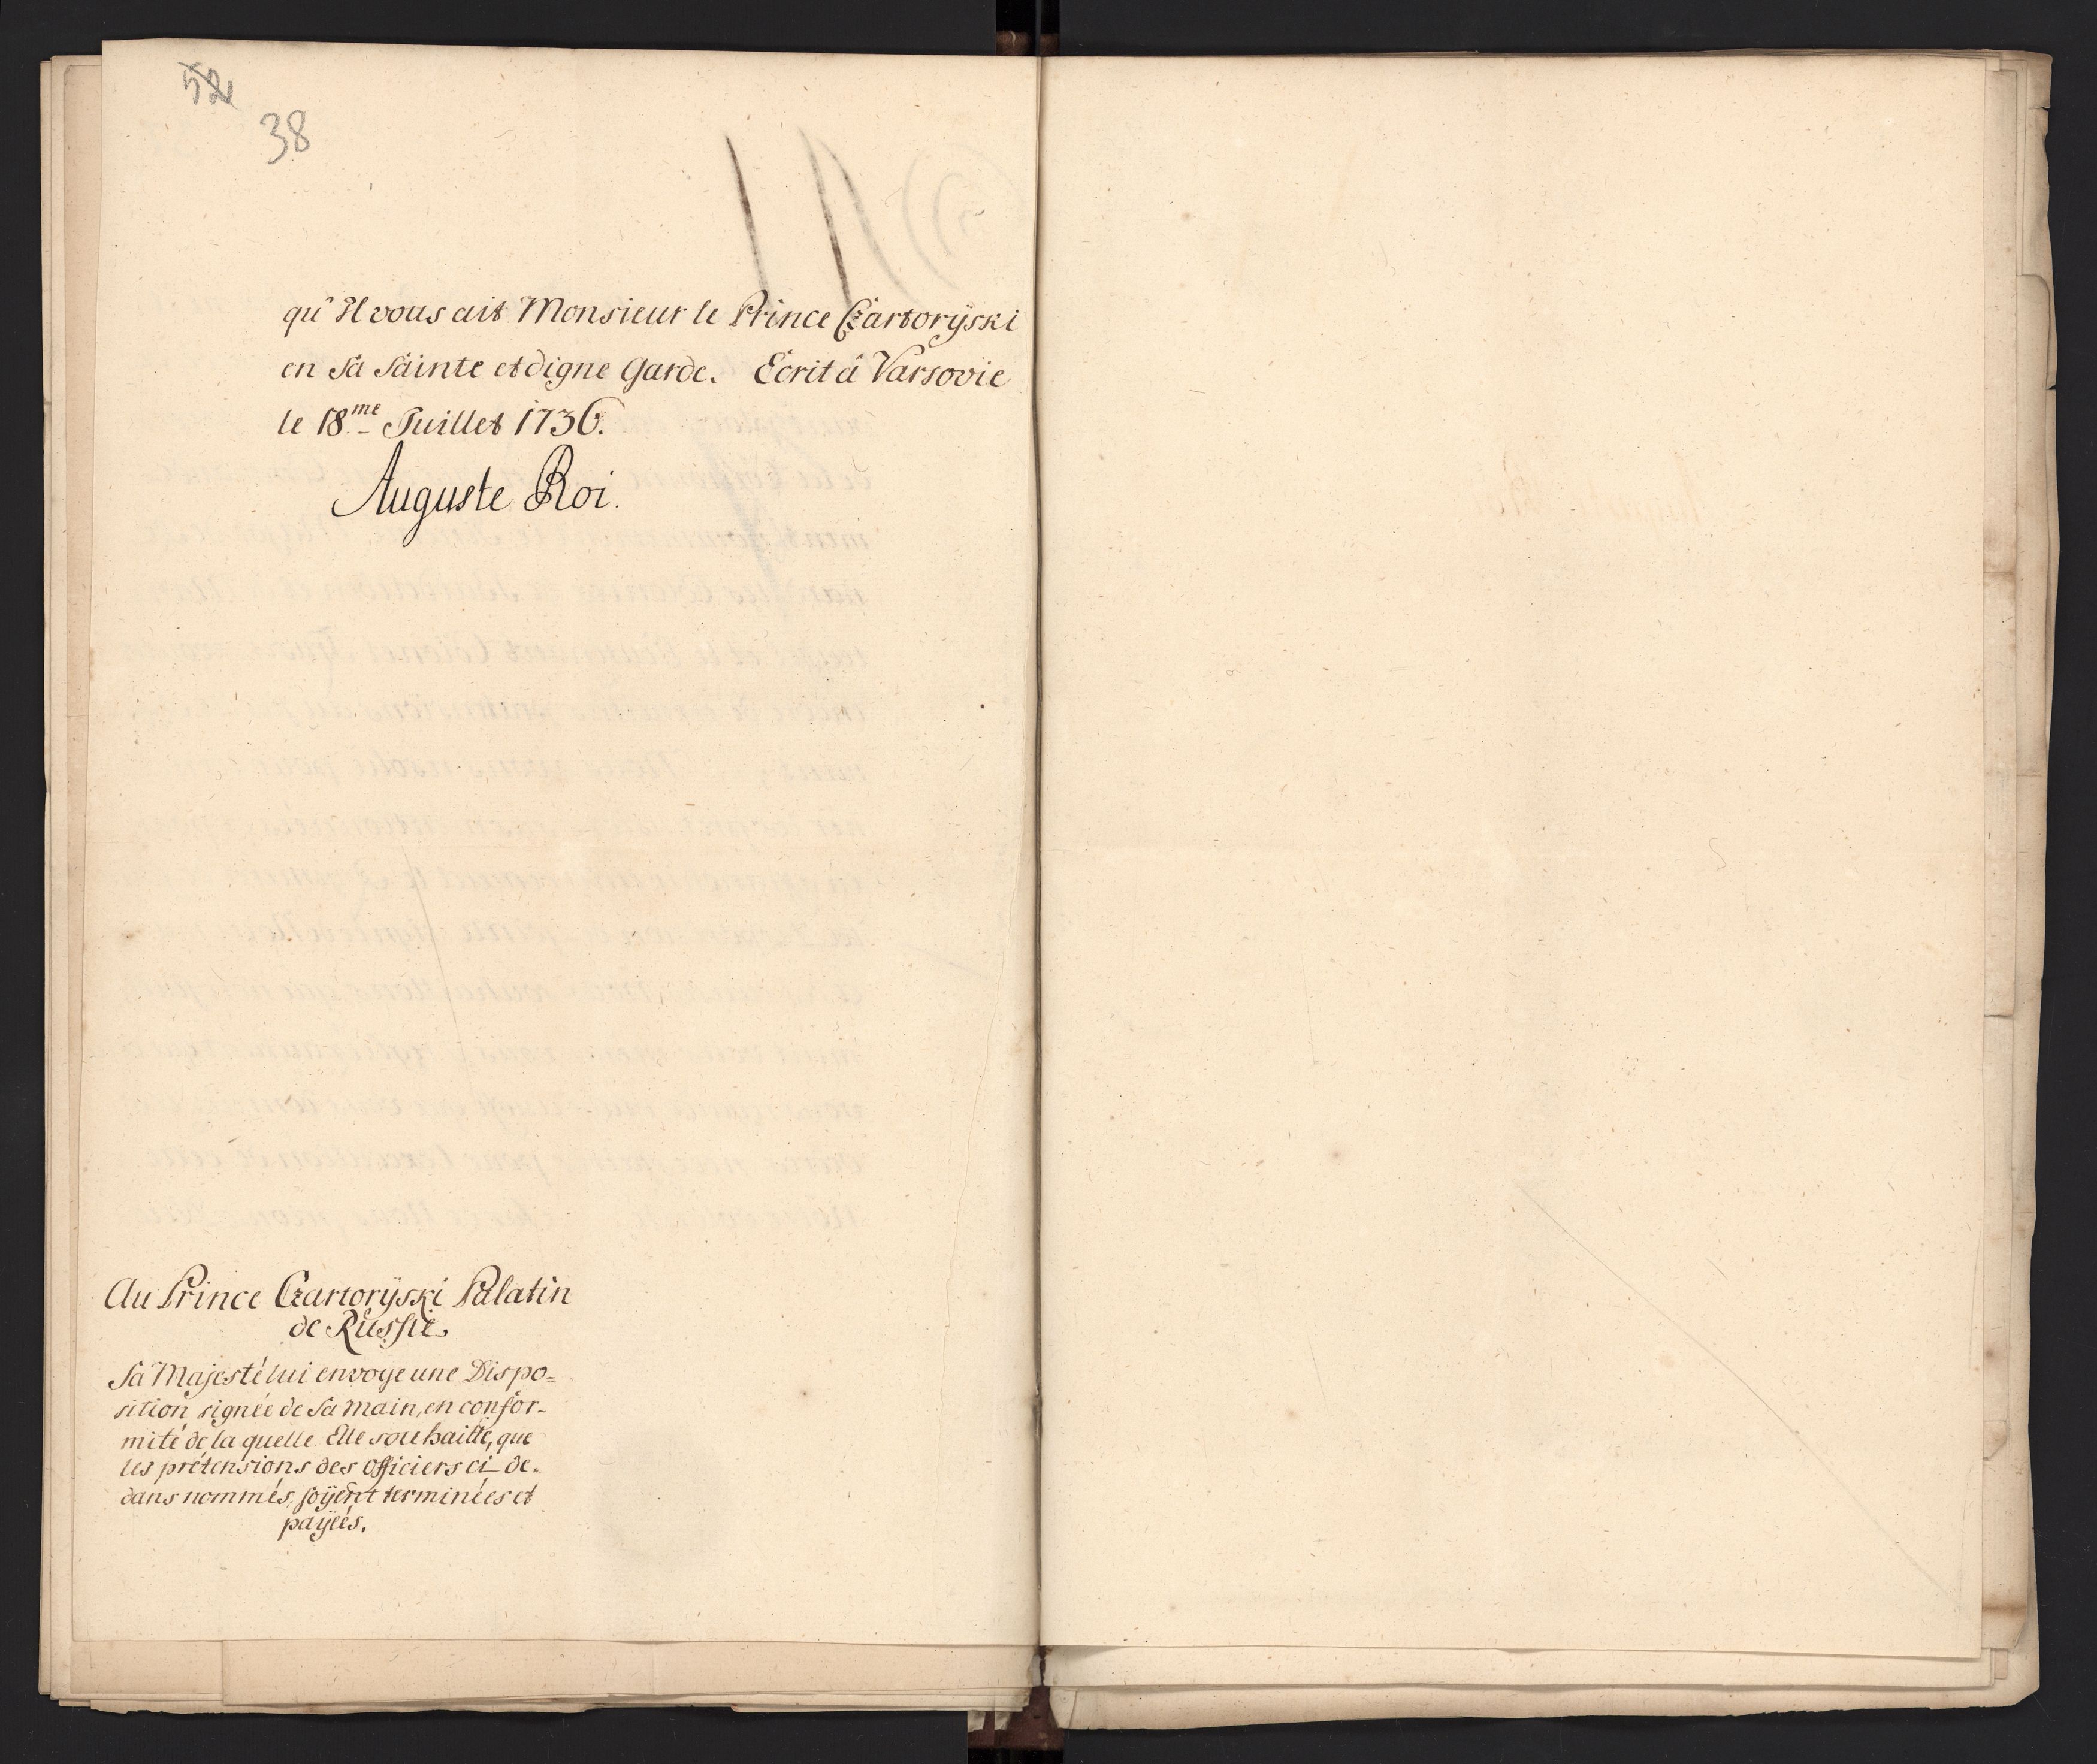 52
38
qu'Il vous ait Monsieur le Prince Czartorÿski
en Sa Sainte et digne Garde. Ecrit à Varsovie
le 18.me Juillet 1736.
Auguste Roi.
Au Prince Czartorÿski Palatin
de Russie.
Sa Majesté lui envoye une Dispo=
sition signée de Sa main, en confor-
mité de la quelle Elle souhaitte, que
les prétensions des Officiers ci-de-
dans nommés, soÿent terminées et
paÿées.